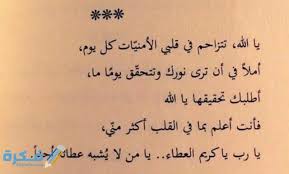 ***
يا الله، تتزاحم في قلبي الأمنيّات كل يوم،
أملاً في أن ترى نورك وتتحقّق يومًا ما،
أطلبك تحقيقها يا الله
فأنت أعلم بما في القلب أكثر منّي،
يا رب يا كريم العطاء.. يا من لا يُشبه عطائه أحداً.